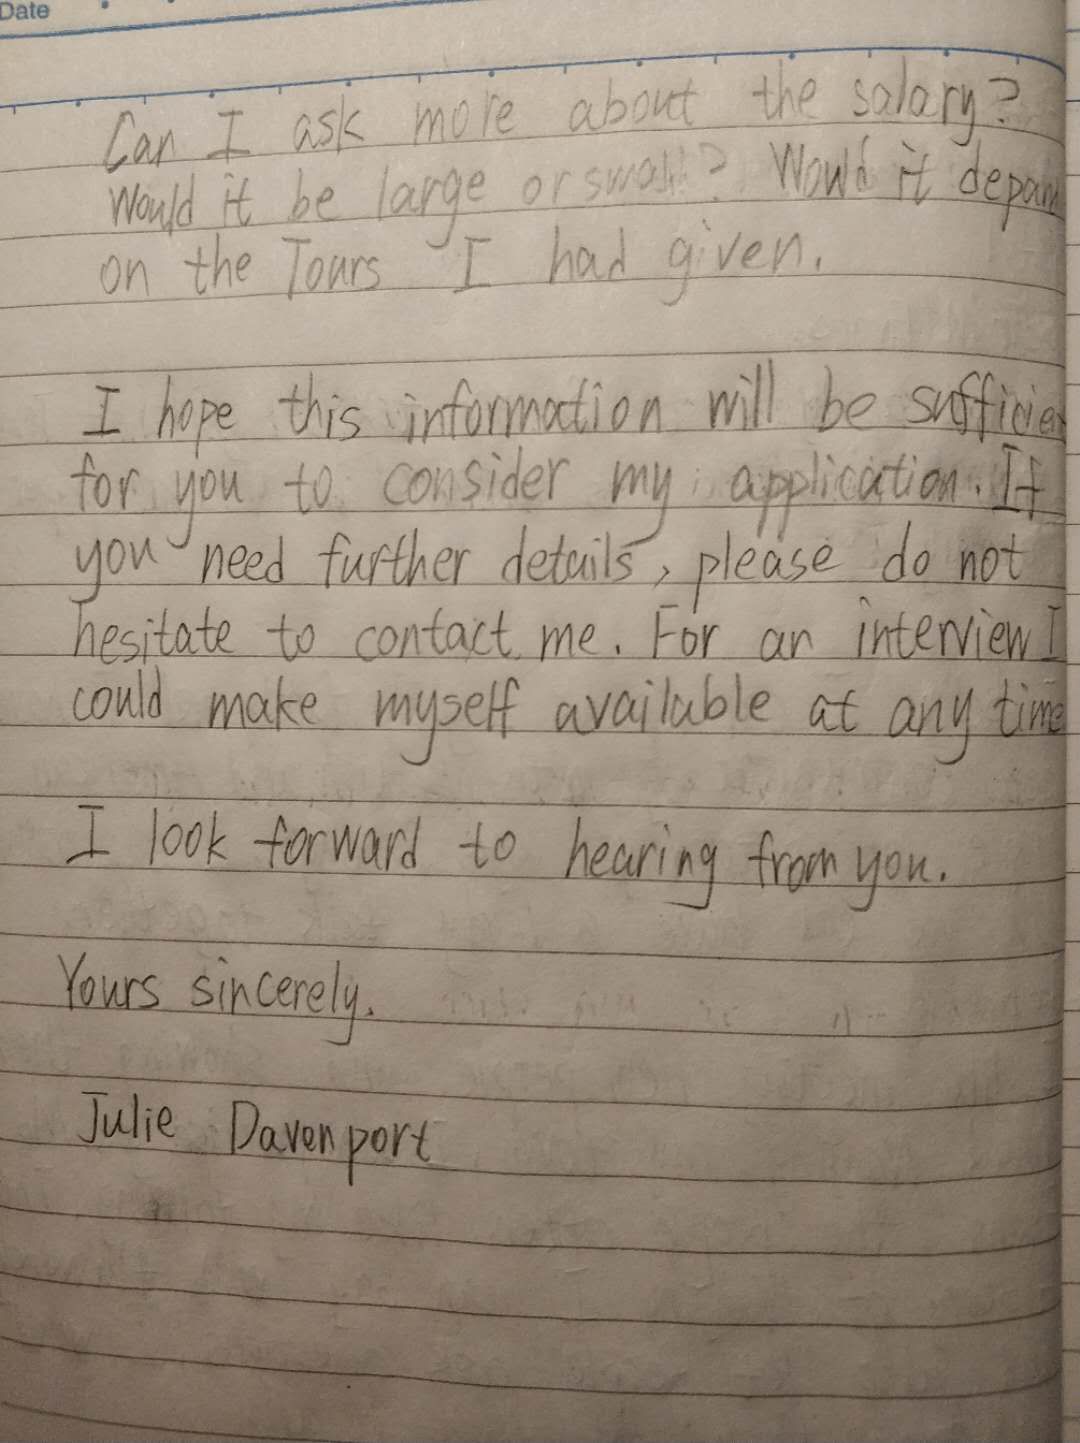 Date
Can I ask more about the salary?
Would it be large or small? Would it
on the Tours I had given.
I hope this information will be
for you to consider my application. If
you need further details, please do not
hesitate to contact me. For an interview I
could make myself available at any time
I look forward to hearing from you.
Yours sincerely.
Julie Davenport